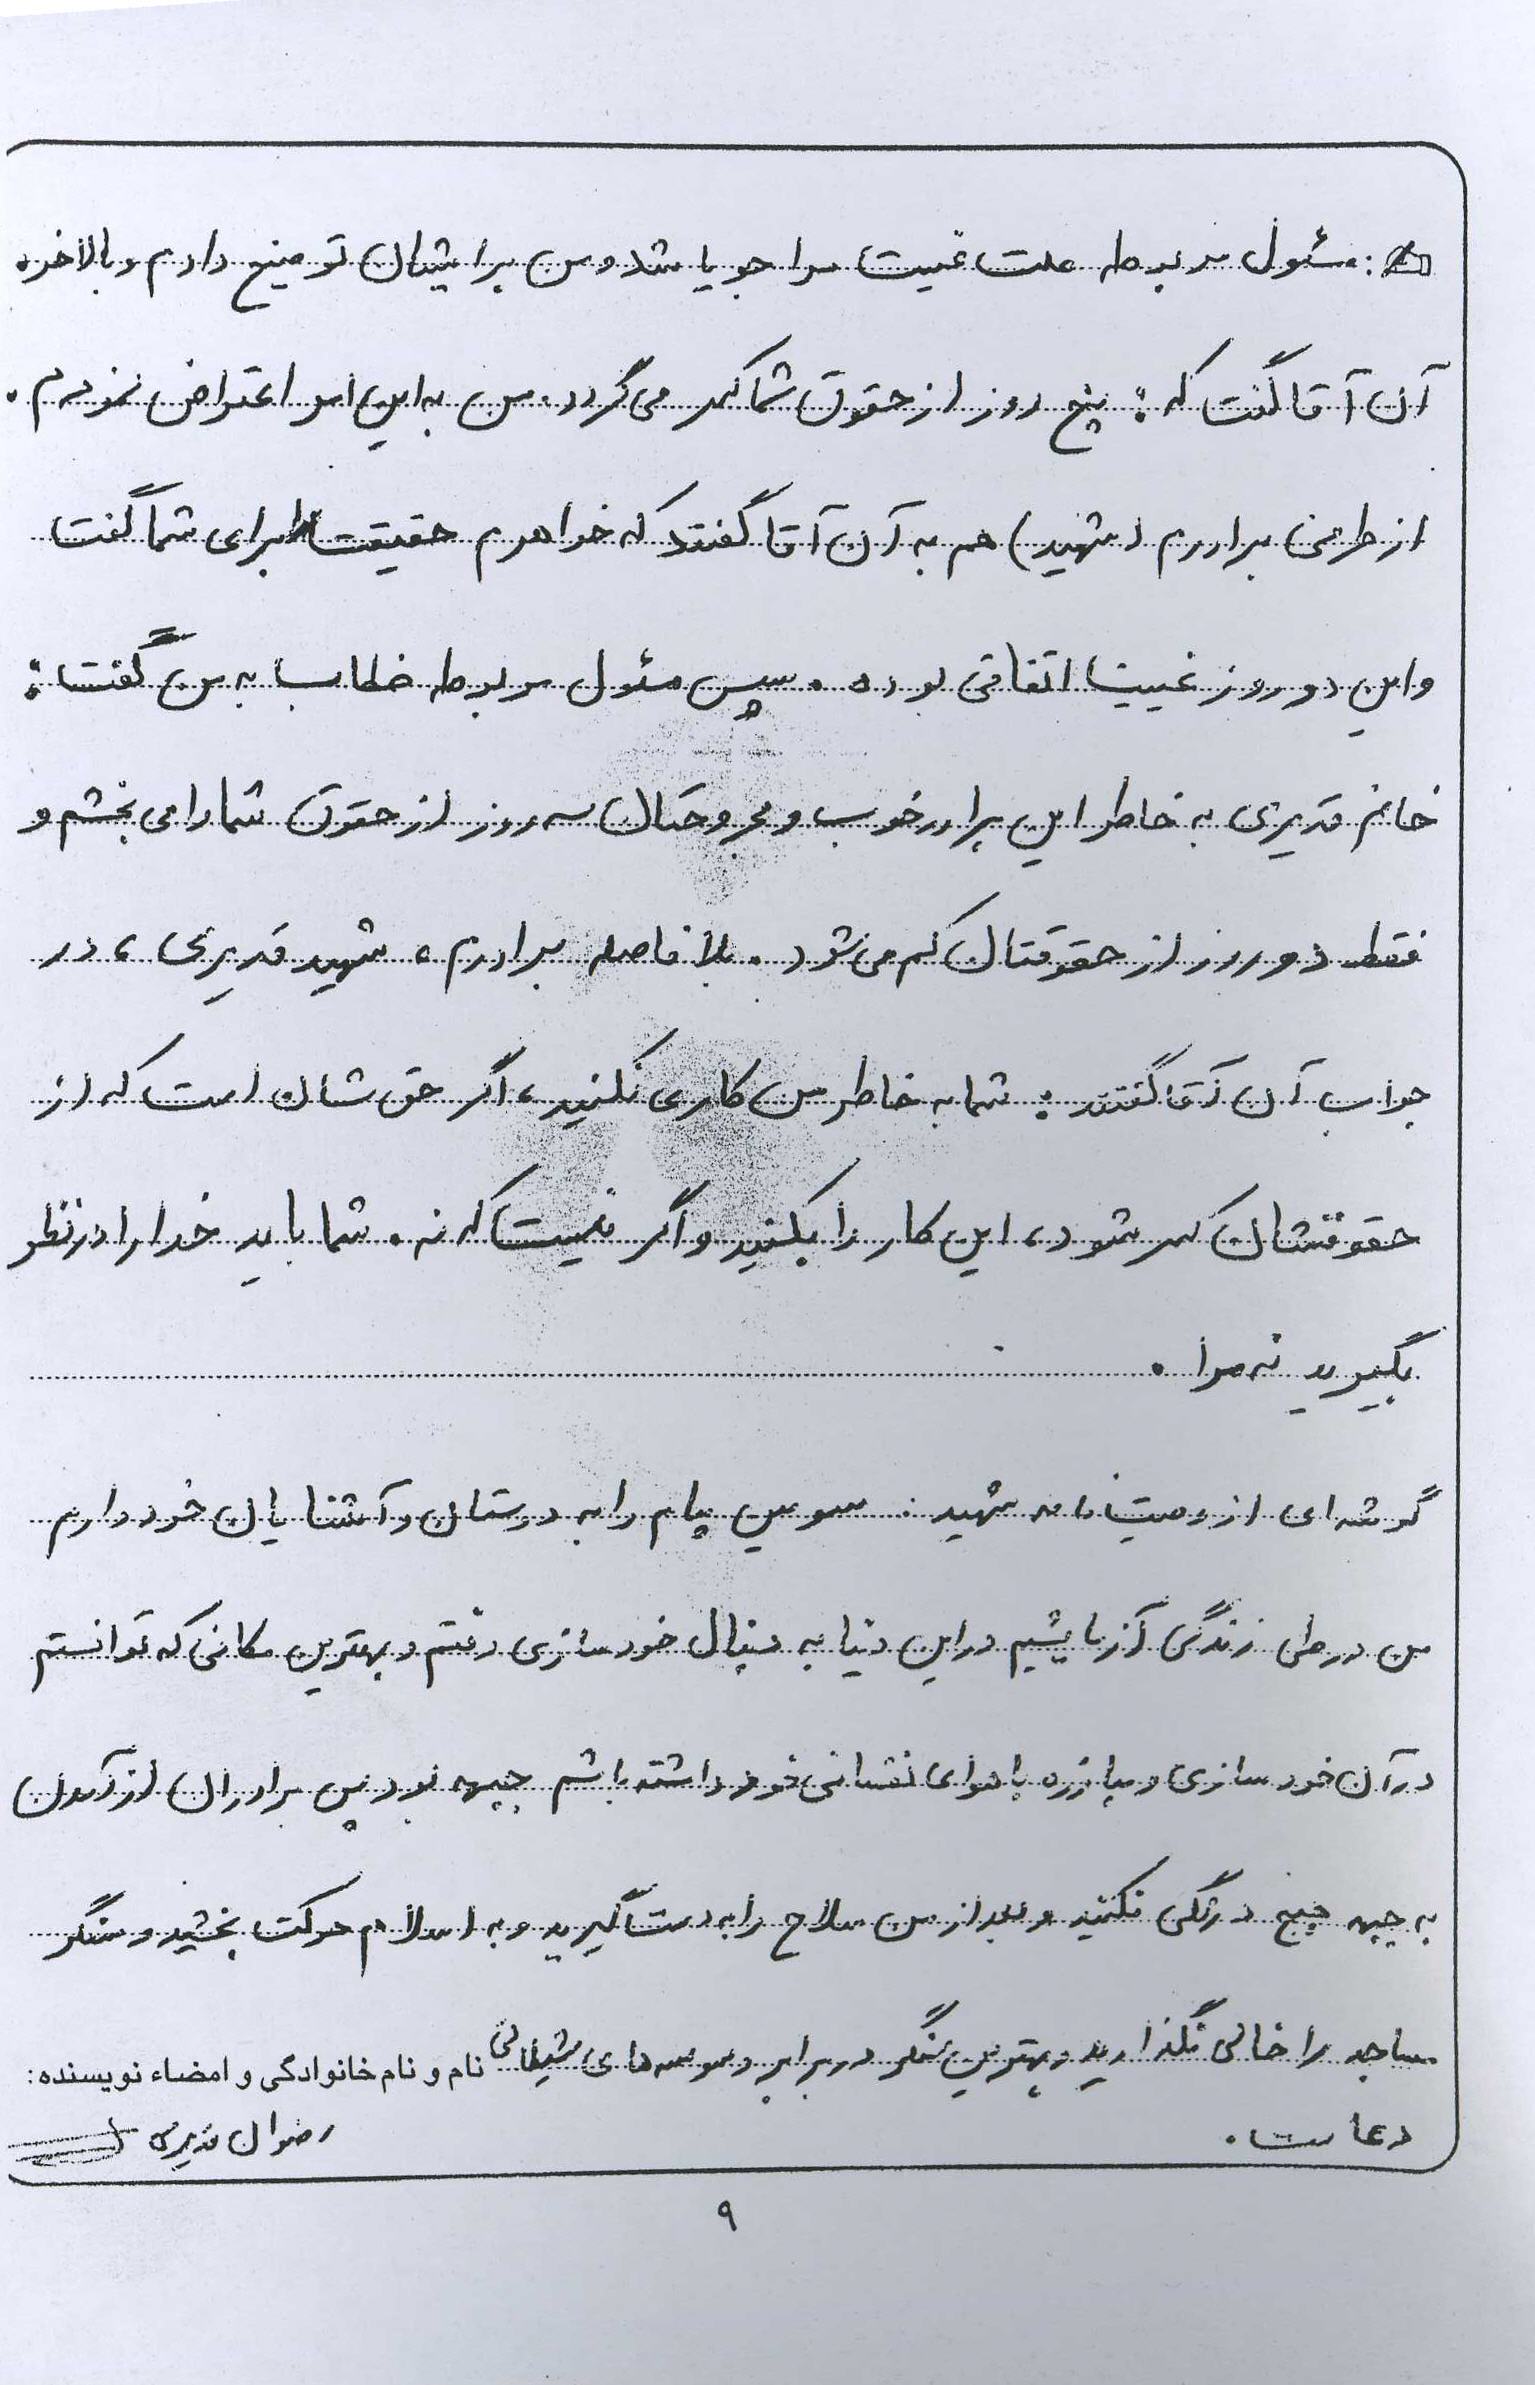 مسئول مربوطه علت غیبت مرا جویا شد و من برایشان توضیح دادم و بالاخره
آن آقا گفت که : پنج روز از حقوق شما کسر می‌گردد . من به این امر اعتراض نمودم .
از طرفی برادرم (شهید) هم به آن آقا گفتند که خواهرم حقیقت را برای شما گفت
و این دو روز غیبت اتفاقی بوده . سپس مسئول مربوطه خطاب به من گفت :
خانم قدیری به خاطر این برادر خوب و مجروحتان سه روز از حقوق شما را می بخشم و
فقط دو روز از حقوقتان کم می‌شود . بلافاصله برادرم ، شهید قدیری ، در
جواب آن آقا گفتند : شما به خاطر من کاری نکنید ، اگر حق شان است که از
حقوقشان کسر شود ، این کار را بکنید و اگر نیست که نه . شما باید خدا را در نظر
بگیرید نه مرا .
گوشه ای از وصیت نامه شهید : سومین پیام را به دوستان و آشنایان خود دارم
من در طی زندگی آزمایشیم در این دنیا به دنبال خودسازی رفتم و بهترین مکانی که توانستم
در آن خودسازی و مبارزه با هوای نفسانی خود داشته باشم جبهه بود پس برادران از آمدن
به جبهه هیچ درنگی نکنید و بعد از من سلاح را به دست گیرید و به اسلام حرکت بخشید و سنگر
مساجد را خالی نگذارید و بهترین سنگر در برابر وسوسه های شیطانی نام و نام خانوادگی و امضاء نویسنده:
دعاست . رضوان قدیری
۹